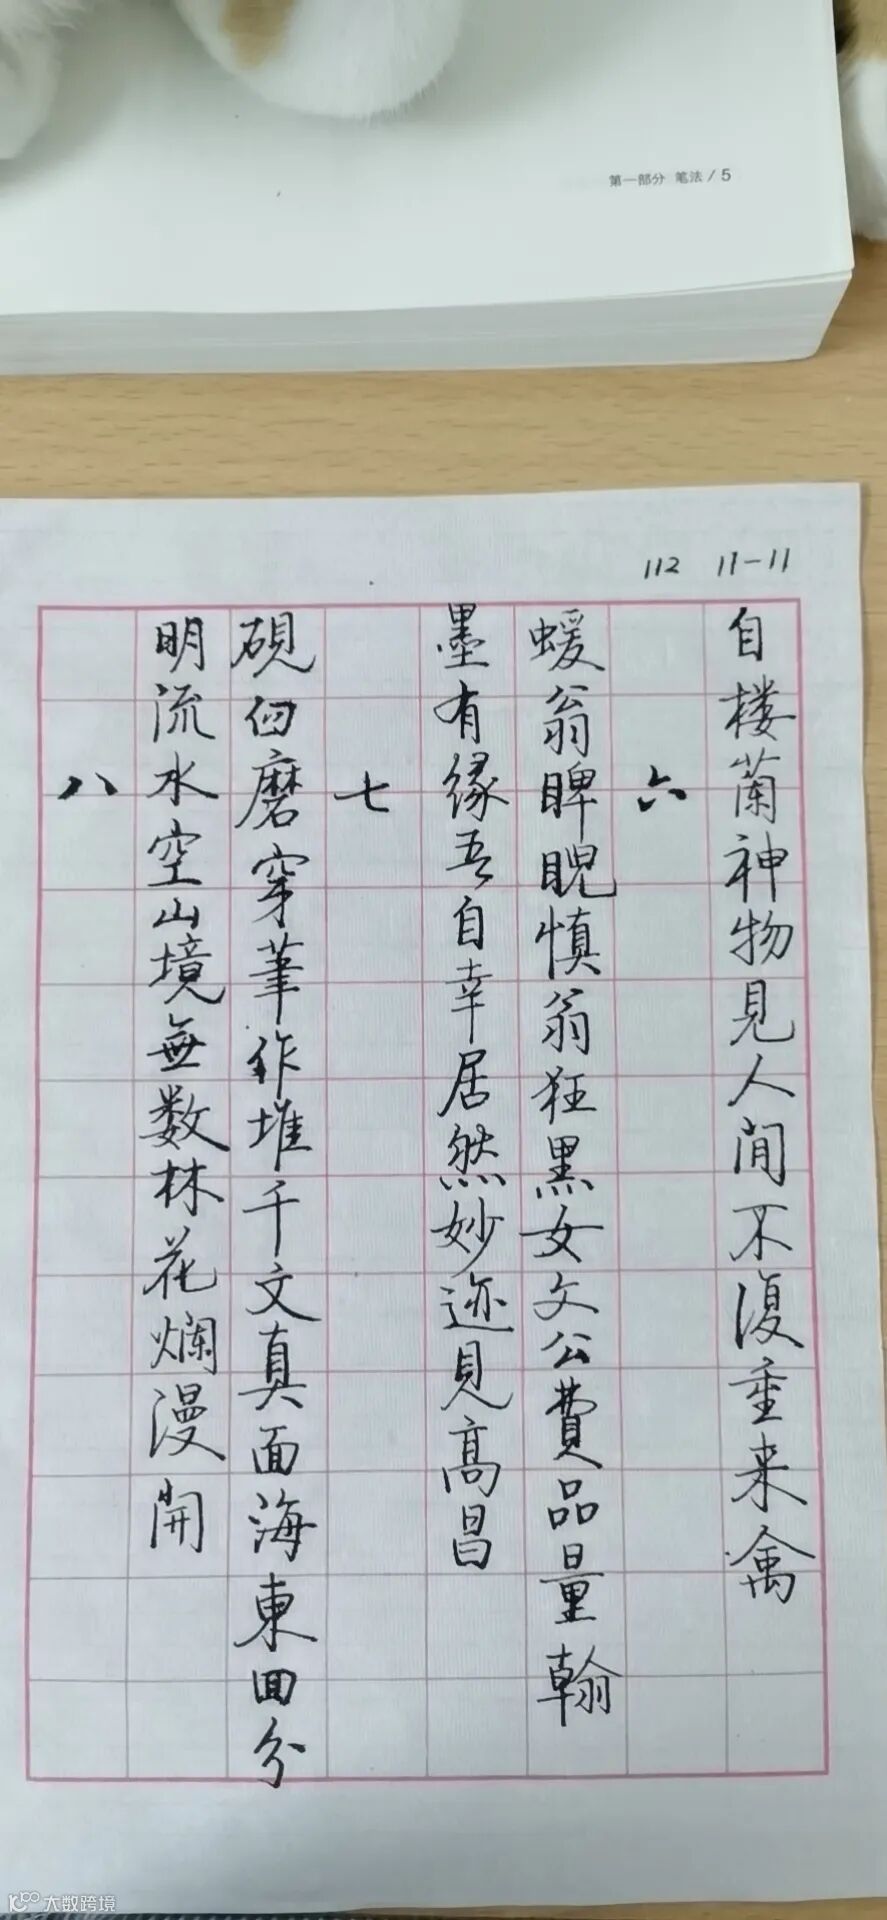 第一部分 笔法 / 5
112 11-11
自楼蘭神物見人间不復重来禽
六
蝯翁睥睨慎翁狂黑女文公費品量翰
墨有缘吾自幸居然妙迹見高昌
七
硯臼磨穿筆作堆千文真面海東回分
明流水空山境無数林花爛漫開
八
大数跨境